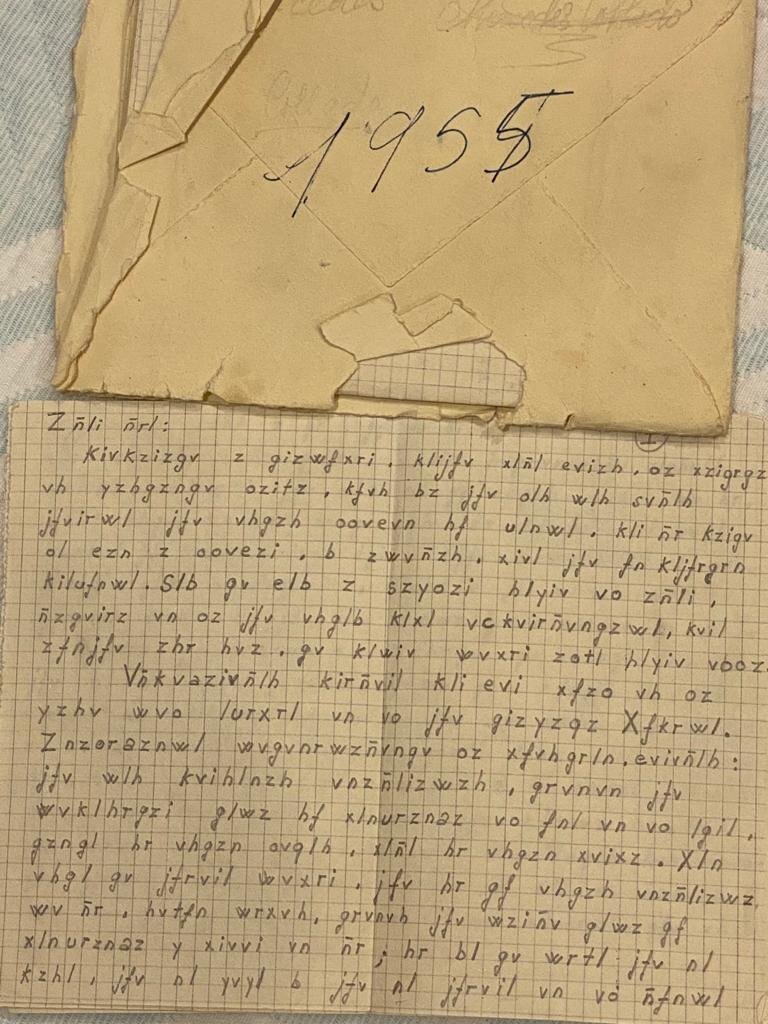 1955
I
Zñli ñrl:
Kivkzizgv z gizwfxri, klijfv xlñl evizh, oz xzigrgz
vh yzhgzngv ozitz, kfvh bz jfv olh wlh svñlh
jfvirwl jfv vhgzh oovevn hf ulnwl, kli ñr kzigv
ol ezn z oovezi, b zwvñzh, xivl jfv fn kljfrgrn
kilufnwl. Slb gv elb z szyozi hlyiv vo zñli,
ñzgvirz vn oz jfv vhglb klxl vckvirñvngzwl, kvil
zfnjfv zhr hvz, gv klwiv wvxri zotl hlyiv vooz.
Vñkvazivñlh kirñvil kli evi xfzo vh oz
yzhv wvo lurxrl vn vo jfv gizyzqz Xfkrwl.
Znzoraznwl wvgvnrwzñvngv oz xfvhgrln, evivñlh:
jfv wlh kvihlnzh vnzñlizwzh, grvnvn jfv
wvklhrgzi glwz hf xlnurznaz vo fnl vn vo lgil,
gzngl hr vhgzn ovqlh, xlñl hr vhgzn xvixz. Xln
vhgl gv jfrvil wvxri, jfv hr gf vhgzh vnzñlizwz
wv ñr, hvtfn wrxvh, grvnvh jfv wziñv glwz gf
xlnurznaz y xivvi vn ñr; hr bl gv wrtl jfv nl
kzhl, jfv nl yvyl b jfv nl jfrvil vn vo ñfnwl